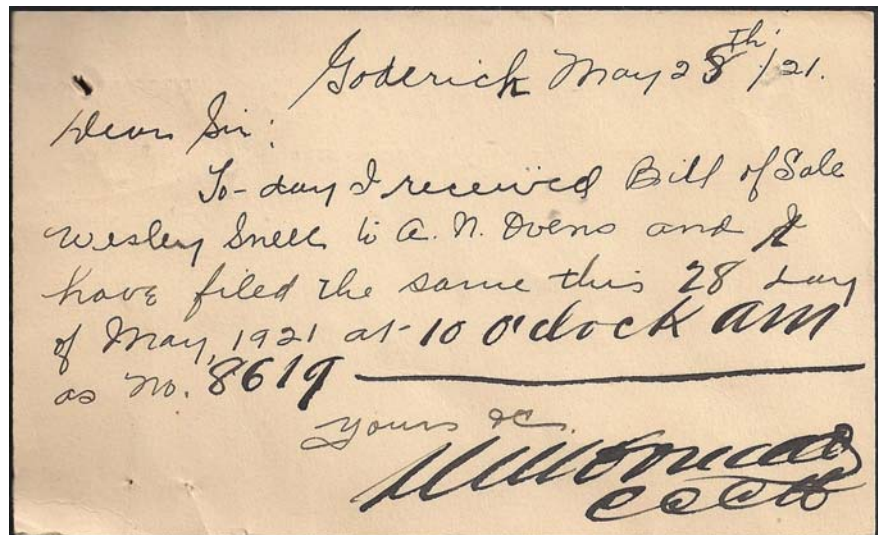 Goderich May 28th/21.
Dear Sir:
To-day I received Bill of Sale
Wesley Snell to A. N. Ovens and I
have filed the same this 28 day
of May, 1921 at 10 o'clock am
as No. 8619
Yours &c.